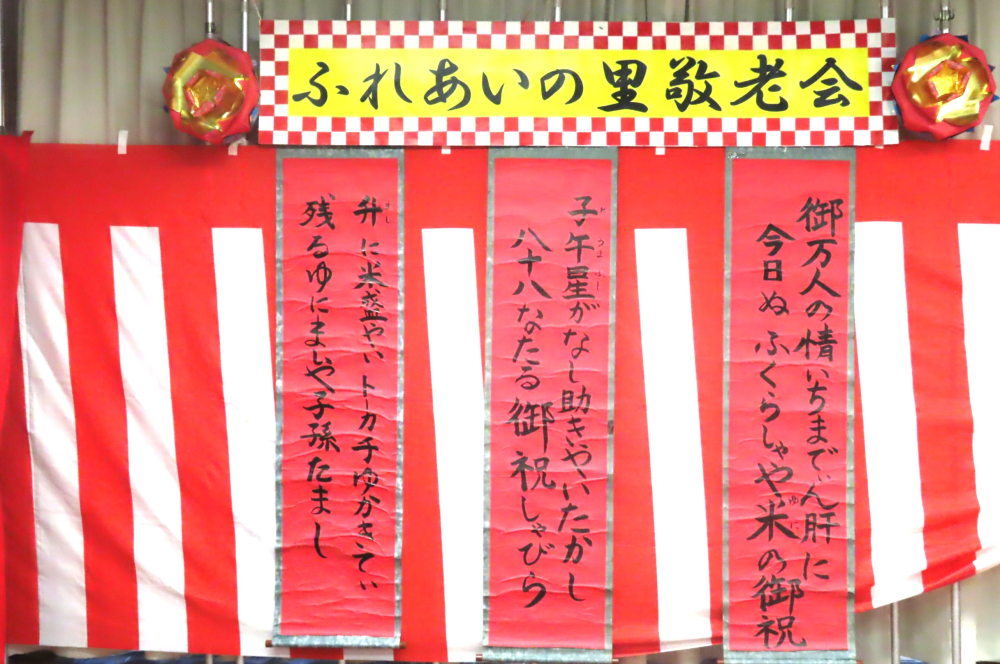 ふれあいの里敬老会
御万人の情いちまでぃん肝に
今日ぬふくらしゃや米の御祝
子午星がなし助きやいたかし
八十八なたる御祝しゃびら
升に米盛やいトーカチゆかきてぃ
残るゆにましや子孫たまし